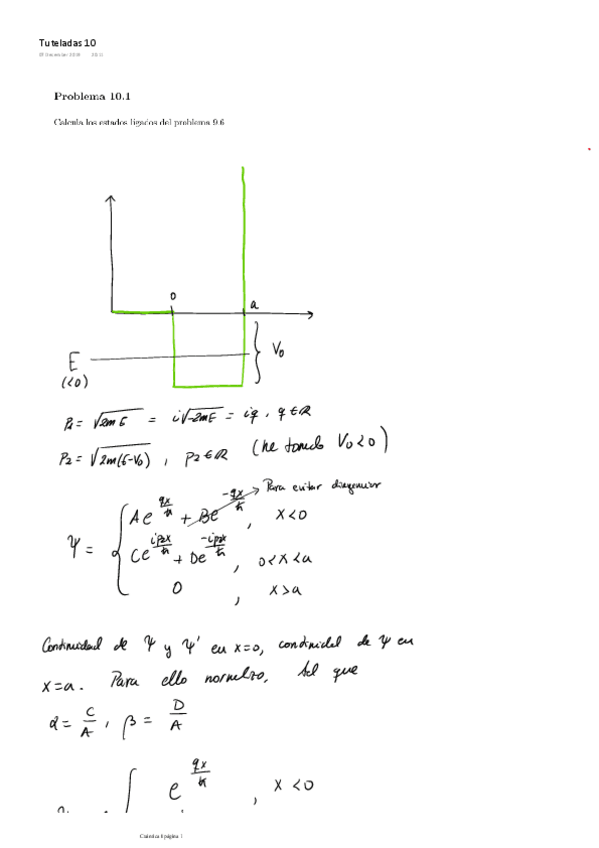 Tuteladas 10
Problema 10.1
Calcula los estados ligados del problema 9.6
0
a
E
(<0)
V₀
P₁ = √2mE = i√-2mE = iq, q ∈ ℝ
P₂ = √2m(E-V₀), P₂ ∈ ℝ (he tomado V₀<0)
Para evitar divergencias
Ψ = { Ae^{qx/ħ} + Be^{-qx/ħ}, x<0
Ce^{ip₂x/ħ} + De^{-ip₂x/ħ}, 0<x<a
0, x>a
Continuidad de Ψ y Ψ' en x=0, continuidad de Ψ en
x=a. Para ello normalizo, tal que
α = C/A, β = D/A
e^{qx/ħ}, x<0
Cuántica I página 1